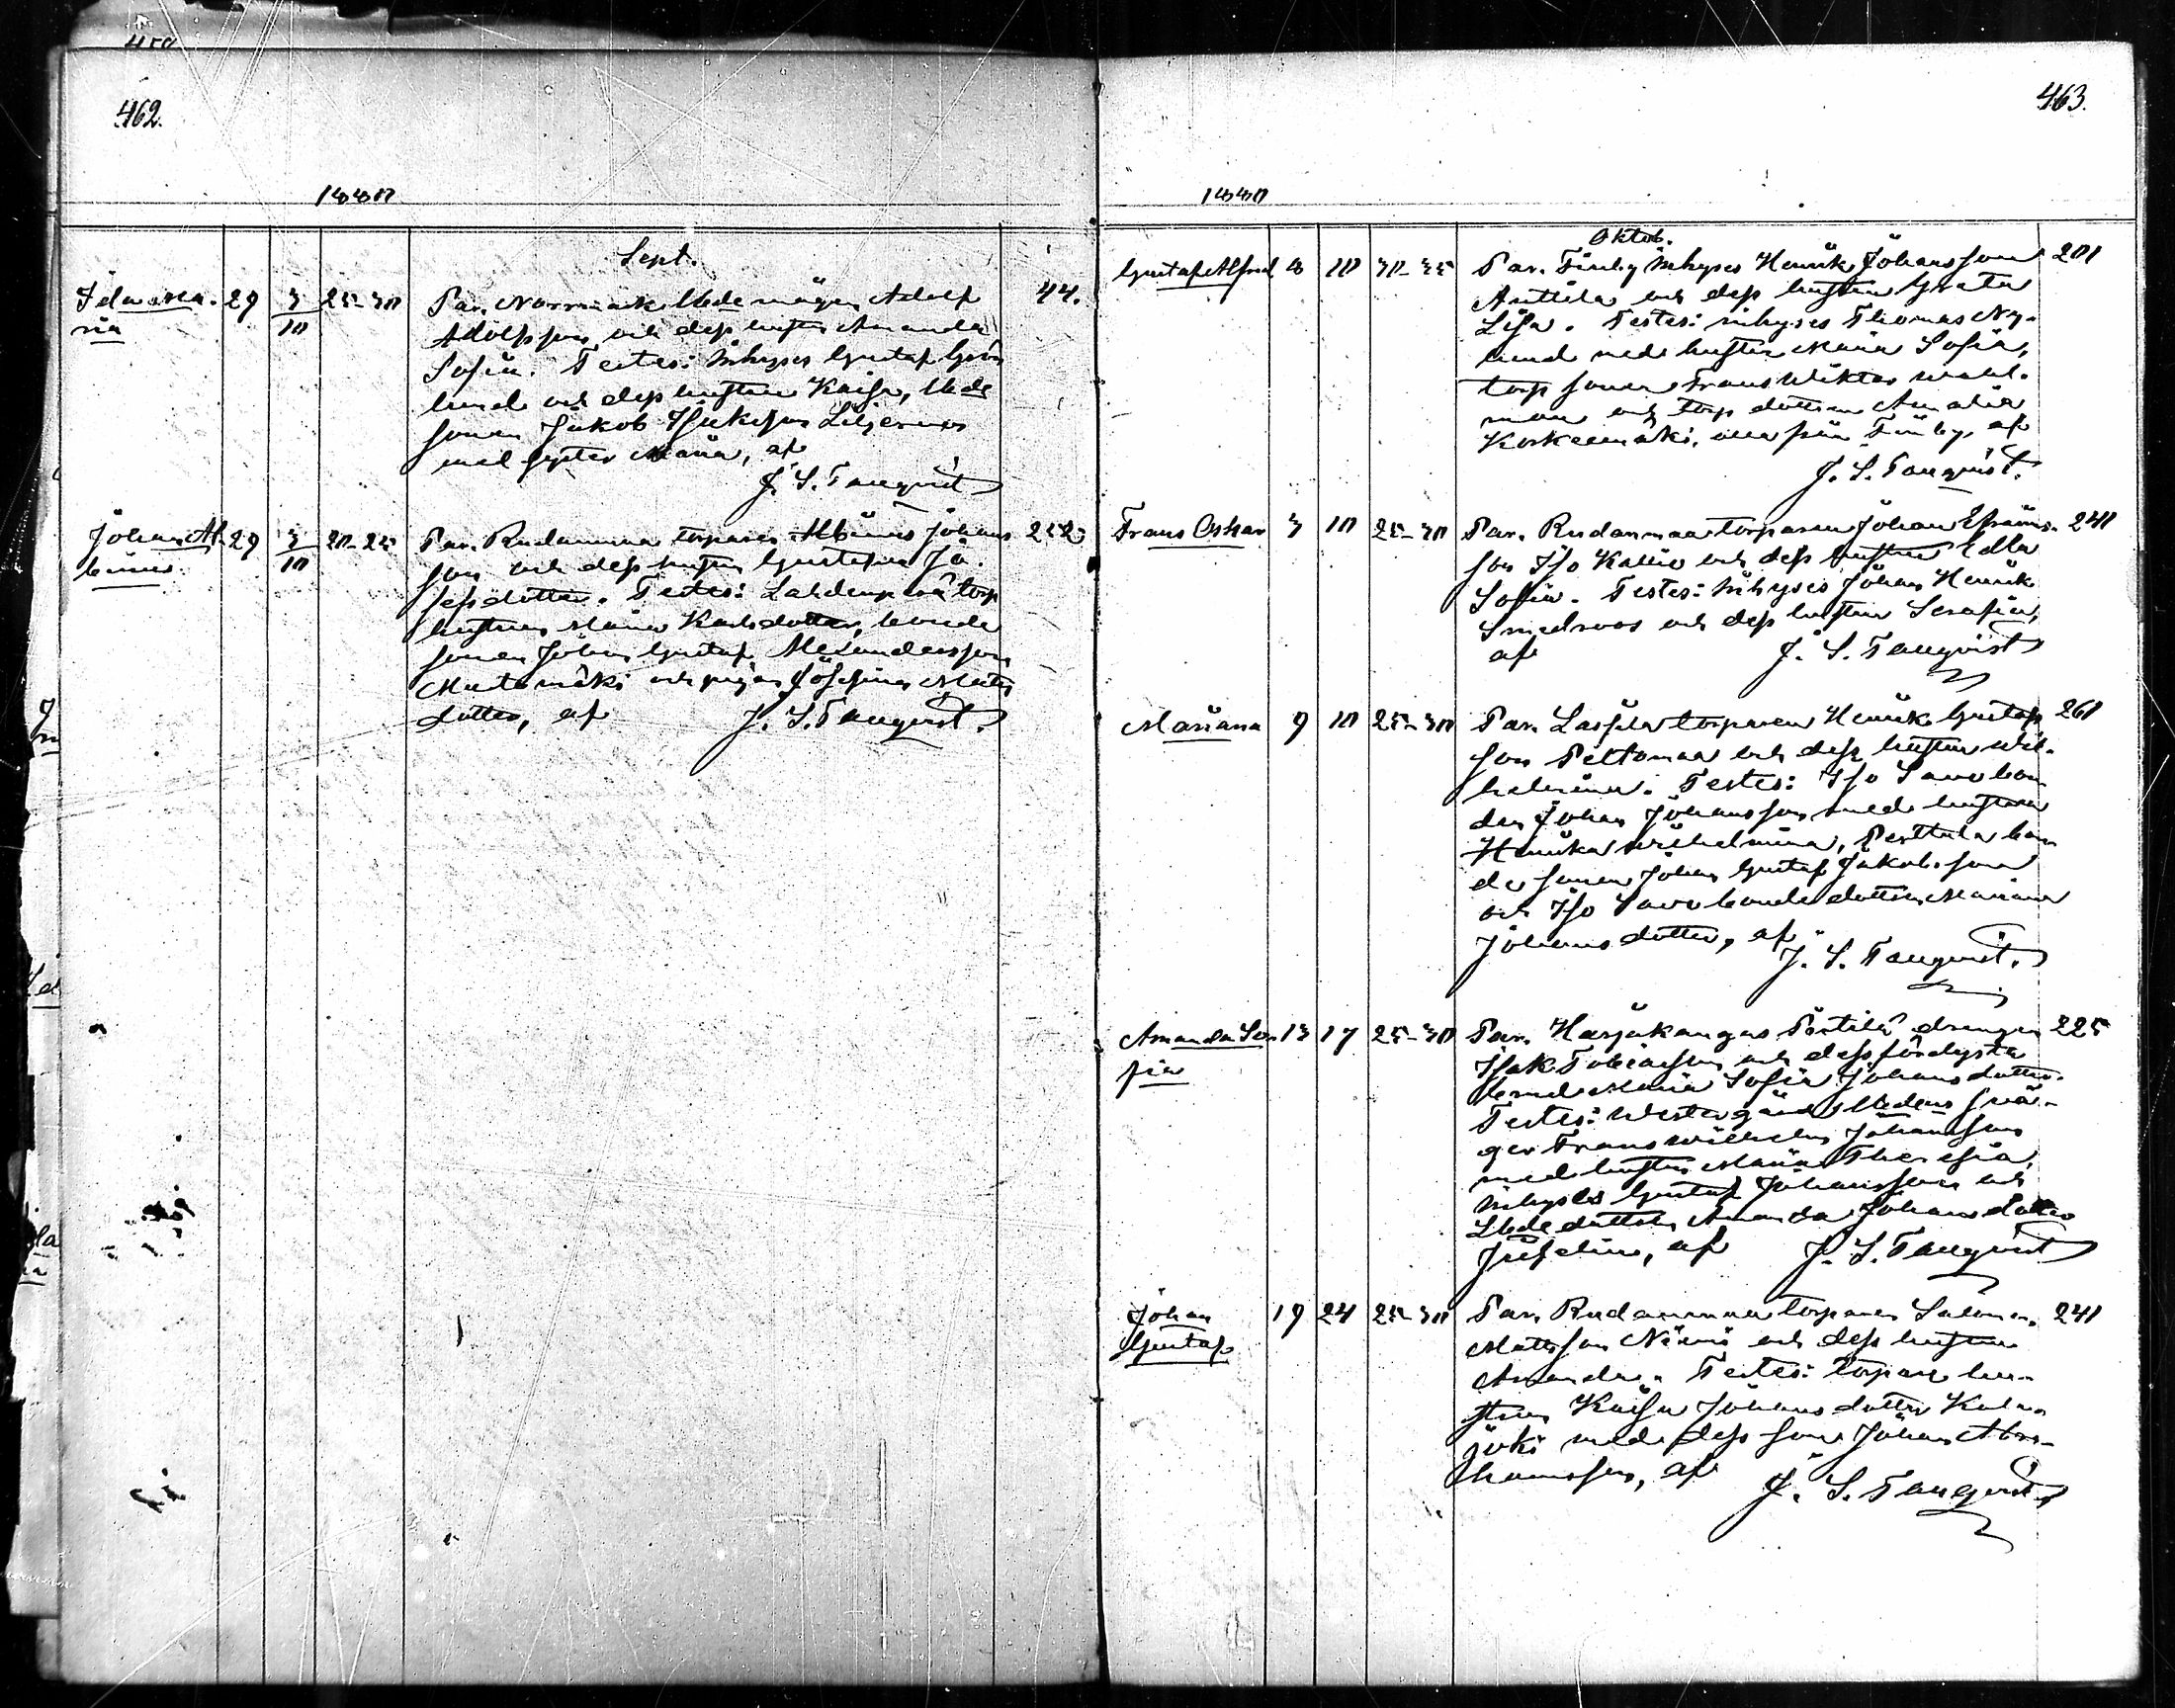 462.
1880
Sept.
Ida Ma-
ria
29 3/10 25-30
Par. Norrmark Åbde mågen Adolf 44.
Adolfsson och dess hustru Amanda
Sofia. Testes: Inhyses Gustaf Grön
lund och dess hustru Kaisa, Åbde
sonen Jakob Isaksson Liljeroos
med syster Maria, af
J. S. Tanqvist
Johan Al-
binus
29 3/10 20-25
Par. Rudanmaa torparen Albinus Johans 252
son och dess hustru Gustafva Jo-
sefsdotter. Testes: Lahdenperä torp
hustrun Maria Karlsdotter, bonde
sonen Johan Gustaf Alexandersson
Mutamäki och pigan Josefina Matts
dotter, af J. S. Tanqvist.
463.
1880
Oktob.
Gustaf Alfred 8 10 30-35 Par. Finby Inhyses Henrik Johansson 201
Anttila och dess hustru Greta
Lisa. Testes: inhyses Thomas Ny-
lund med hustru Maria Sofia,
torp sonen Frans Viktor
och torp dottren Amalia
Koskenmäki, alla från Finby, af
J. S. Tanqvist.
Frans Oskar 3 10 25-30 Par. Rudanmaa torparen Johan Efraims- 241
son Iso Kallio och dess hustru Edla
Sofia. Testes: Inhyses Johan Henrik
Smedroos och dess hustru Serafia,
af J. S. Tanqvist
Mariana 9 10 25-30 Par. Lassila torparen Henrik Gustafs 261
son Peltomaa och dess hustru Wil-
helmina. Testes: Iso Savo bon
den Johan Johansson med hustru
Henrika Wilhelmina, Perttula bon
de sonen Johan Gustaf Jakobsson
och Iso Savo bonde dottren Mariana
Johansdotter, af
J. S. Tanqvist.
Amanda So-
fia
13 17 25-30 Par. Harjakangas Pertilä drengen 225
Isak Tobiasson och dess fördysta
brud Maria Sofia Johansdotter.
Testes: Westergård Åbdens svå-
ger Frans Wilhelm Johansson
med hustru Maria Theresia,
inhyses Gustaf Johansson och
Åbde dottren Amanda Johansdotter
af J. S. Tanqvist
Johan
Gustaf
19 24 25-30 Par. Rudanmaa torparen Salomon 241
Mattsson Niemi och dess hustru
Amanda. Testes: torpare hu-
strun Kaisa Johansdotter
joki med dess son Johan Abra-
hamsson, af J. S. Tanqvist